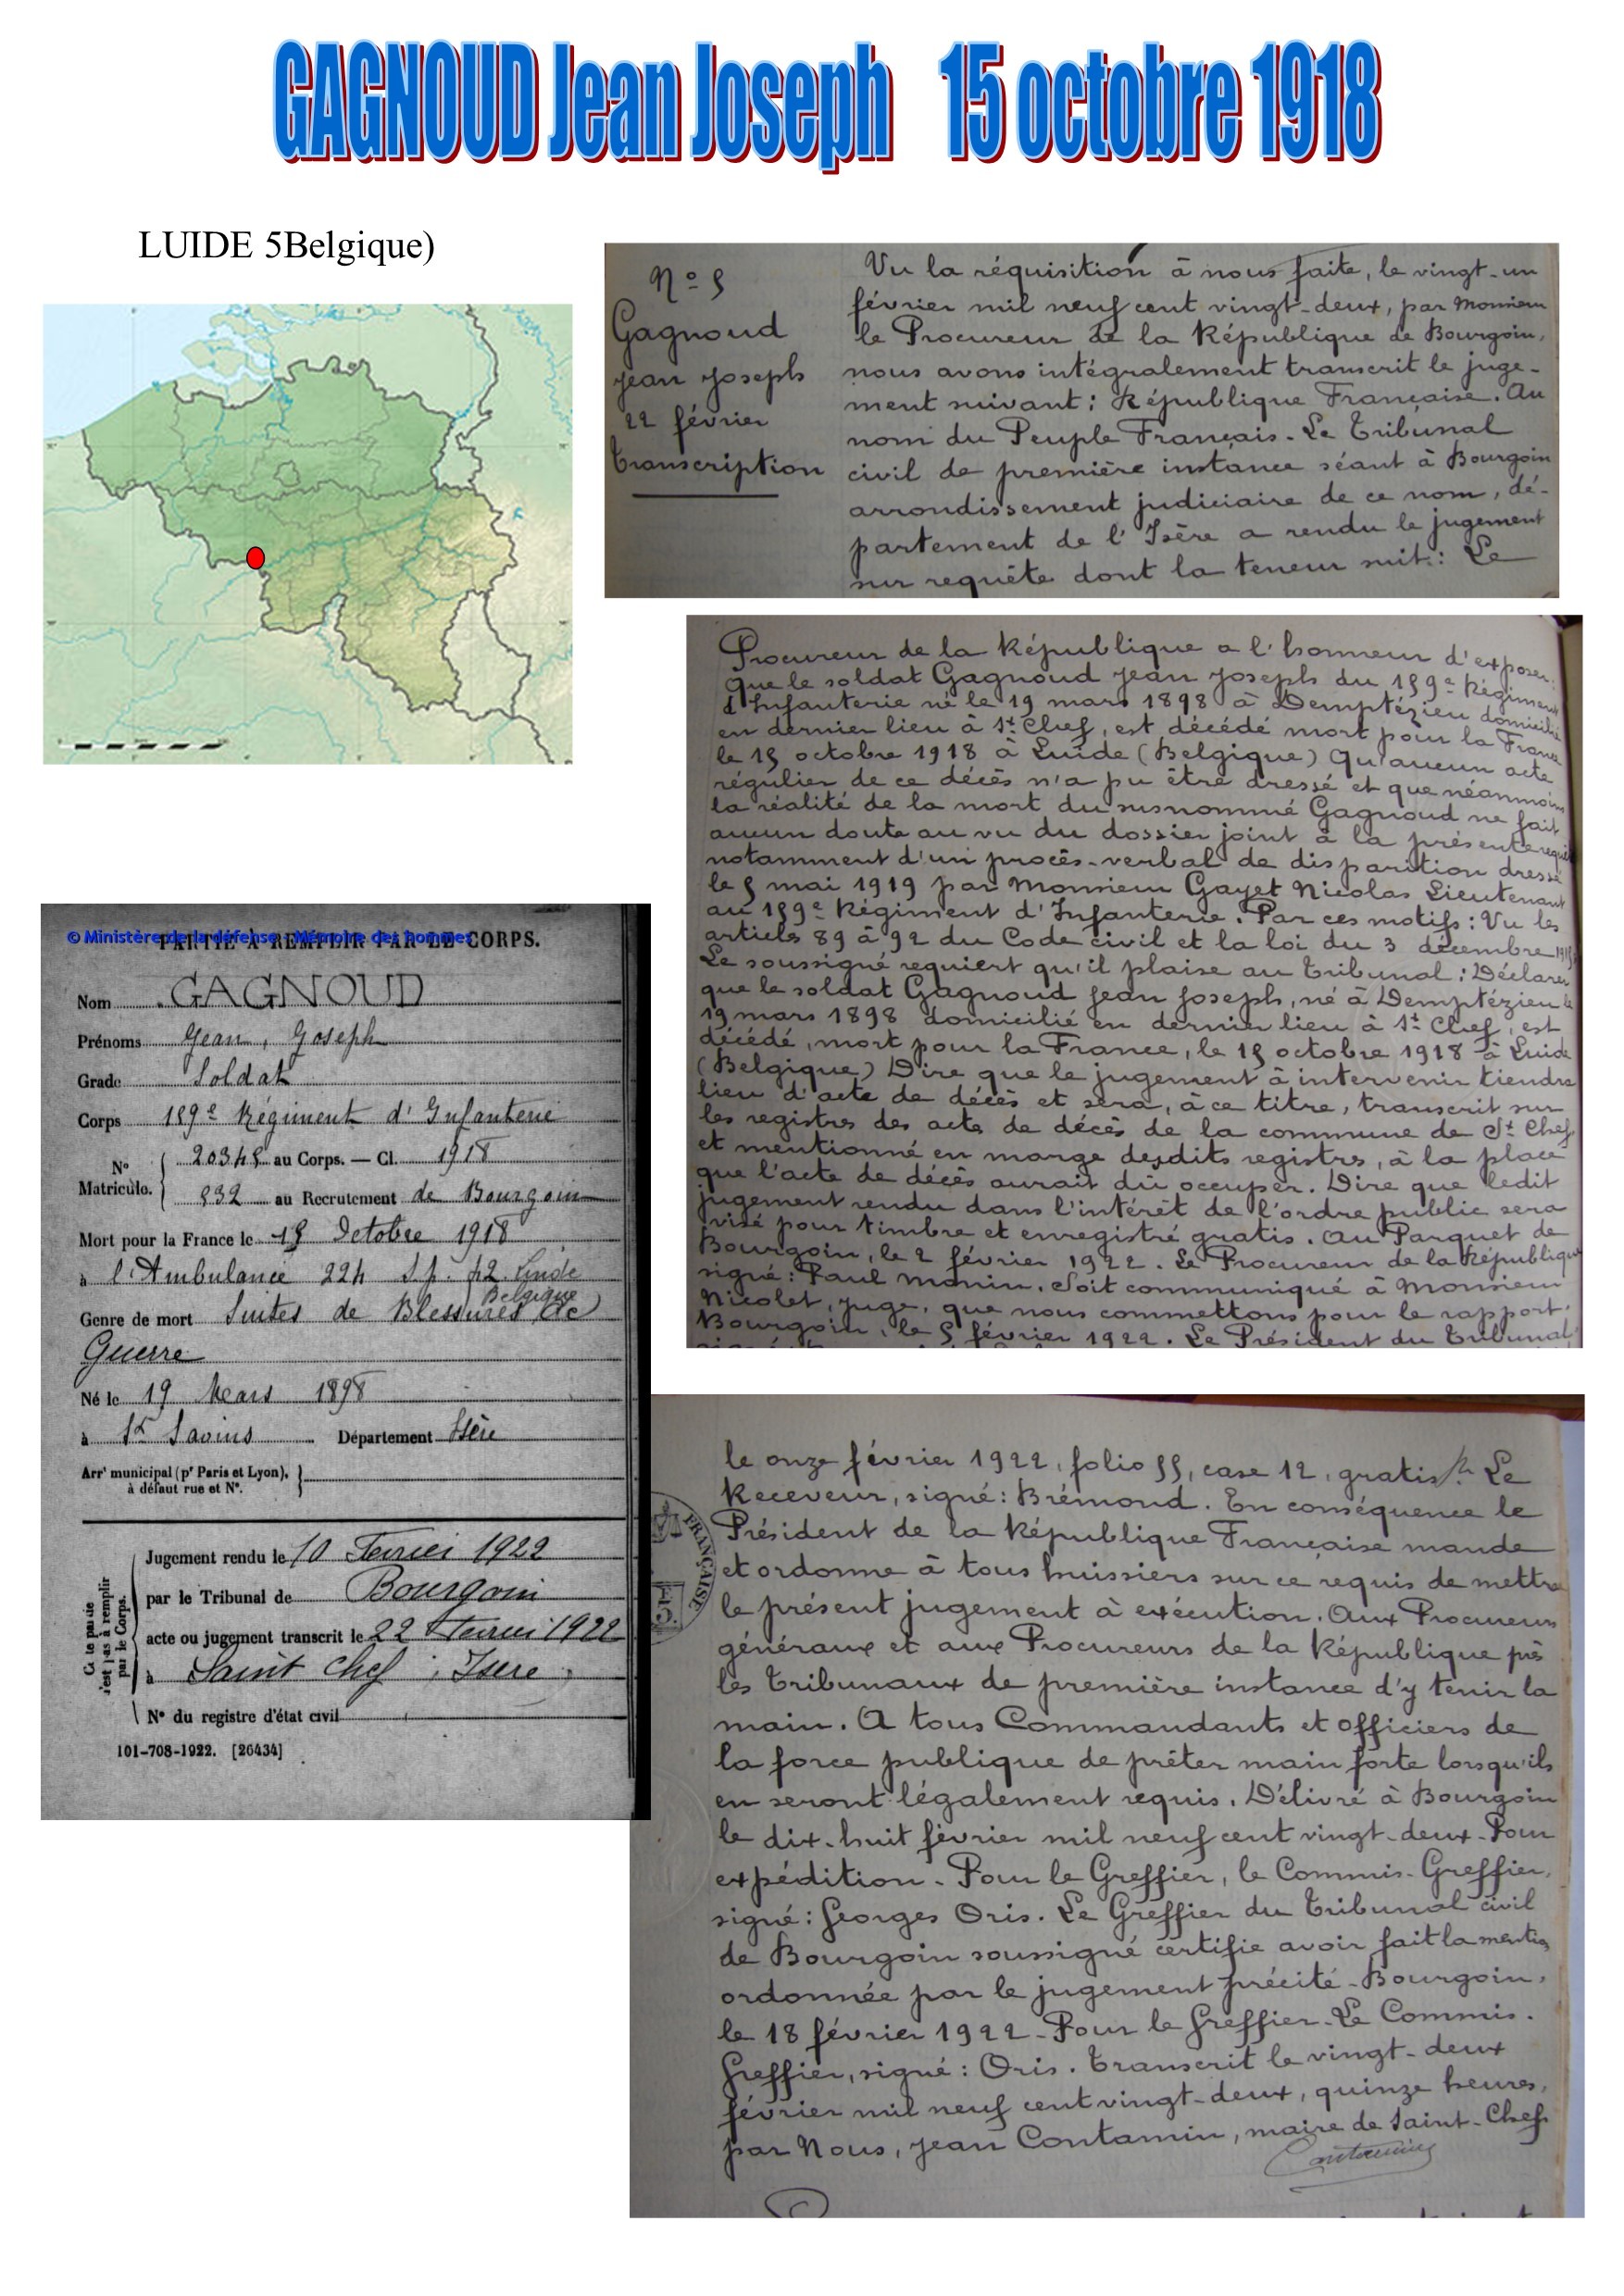 GAGNOUD Jean Joseph 15 octobre 1918
LUIDE 5Belgique)
N° 5
Gagnoud
Jean Joseph
22 février
transcription
Vu la réquisition à nous faite, le vingt-un
février mil neuf cent vingt-deux, par Monsieur
le Procureur de la République de Bourgoin,
nous avons intégralement transcrit le juge-
ment suivant : République Française. Au
nom du Peuple Français. Le Tribunal
civil de première instance séant à Bourgoin
arrondissement judiciaire de ce nom, dé-
partement de l'Isère a rendu le jugement
sur requête dont la teneur suit : Le
Procureur de la République a l'honneur d'exposer :
Que le soldat Gagnoud Jean Joseph du 159e Régiment
d'Infanterie né le 19 mars 1898 à Demptézieu domicilié
en dernier lieu à St Chef, est décédé mort pour la France
le 15 octobre 1918 à Luide (Belgique) Qu'aucun acte
régulier de ce décès n'a pu être dressé et que néanmoins
la réalité de la mort du susnommé Gagnoud ne fait
aucun doute au vu du dossier joint à la présente
notamment d'un procès-verbal de disparition dressé
le 5 mai 1919 par Monsieur Gayet Nicolas Lieutenant
au 159e Régiment d'Infanterie. Par ces motifs : Vu les
articles 89 à 92 du Code civil et la loi du 3 décembre
Le soussigné requiert qu'il plaise au tribunal : Déclarer
que le soldat Gagnoud Jean Joseph, né à Demptézieu le
19 mars 1898 domicilié en dernier lieu à St Chef, est
décédé, mort pour la France, le 15 octobre 1918 à Luide
(Belgique) Dire que le jugement à intervenir tiendra
lieu d'acte de décès et sera, à ce titre, transcrit sur
les registres des acte de décès de la commune de St Chef,
et mentionné en marge desdits registres, à la place
que l'acte de décès aurait dû occuper. Dire que ledit
jugement rendu dans l'intérêt de l'ordre public sera
visé pour timbre et enregistré gratis. Au Parquet de
Bourgoin, le 2 février 1922. Le Procureur de la République
signé : Paul Monin. Soit communiqué à Monsieur
Nicolet, juge, que nous commettons pour le rapport.
Bourgoin, le 5 février 1922. Le Président du Tribunal
© Ministère de la défense - Mémoire des hommes
PARTIE À REMPLIR PAR LE CORPS.
Nom GAGNOUD
Prénoms Jean, Joseph
Grade Soldat
Corps 159e Régiment d'Infanterie
N° Matricule. 20345 au Corps. — Cl. 1918
832 au Recrutement de Bourgoin
Mort pour la France le 15 Octobre 1918
à l'Ambulance 224 S.p. 42 Luide
Belgique
Genre de mort Suites de Blessures de
Guerre
Né le 19 Mars 1898
à St Savins Département Isère
Arrt municipal (pr Paris et Lyon),
à défaut rue et N°.
Jugement rendu le 10 Fevrier 1922
par le Tribunal de Bourgoin
acte ou jugement transcrit le 22 Fevrier 1922
à Saint Chef, Isere
N° du registre d'état civil
101-708-1922. [26434]
le onze février 1922, folio 55, case 12, gratis. Le
Receveur, signé : Brémond. En conséquence le
Président de la République Française mande
et ordonne à tous huissiers sur ce requis de mettre
le présent jugement à exécution. Aux Procureurs
généraux et aux Procureurs de la République près
les tribunaux de première instance d'y tenir la
main. A tous Commandants et officiers de
la force publique de prêter main forte lorsqu'ils
en seront légalement requis. Délivré à Bourgoin
le dix-huit février mil neuf cent vingt-deux. Pour
expédition. Pour le Greffier, le Commis-Greffier,
signé : Georges Oris. Le Greffier du tribunal civil
de Bourgoin soussigné certifie avoir fait la mention
ordonnée par le jugement précité. Bourgoin,
le 18 février 1922. Pour le Greffier. Le Commis.
Greffier, signé : Oris. Transcrit le vingt-deux
février mil neuf cent vingt-deux, quinze heures,
par Nous, Jean Contamin, maire de Saint-Chef.
Contamin
FRANÇAISE